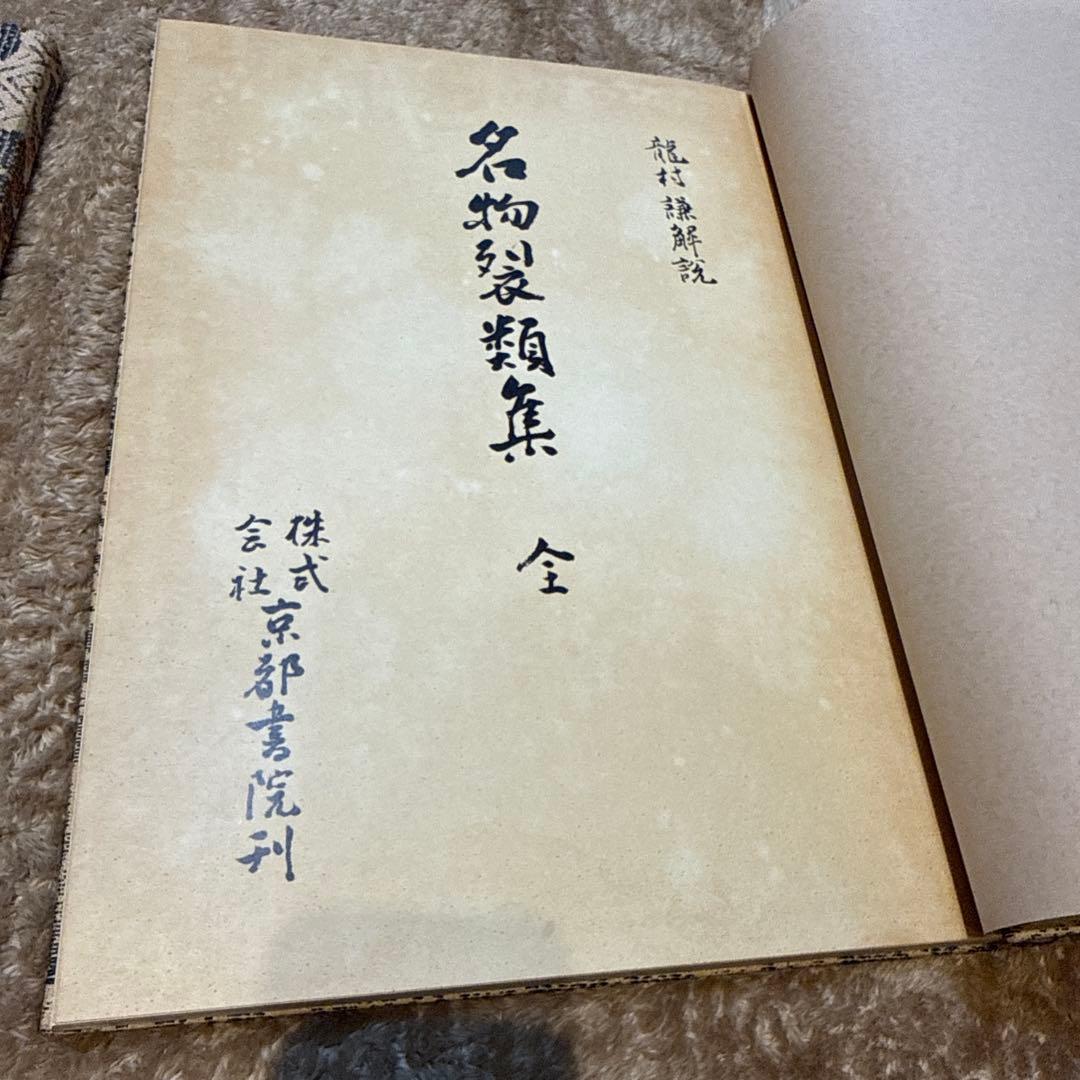 龍村謙解説
名物裂類集 全
株式会社 京都書院刊